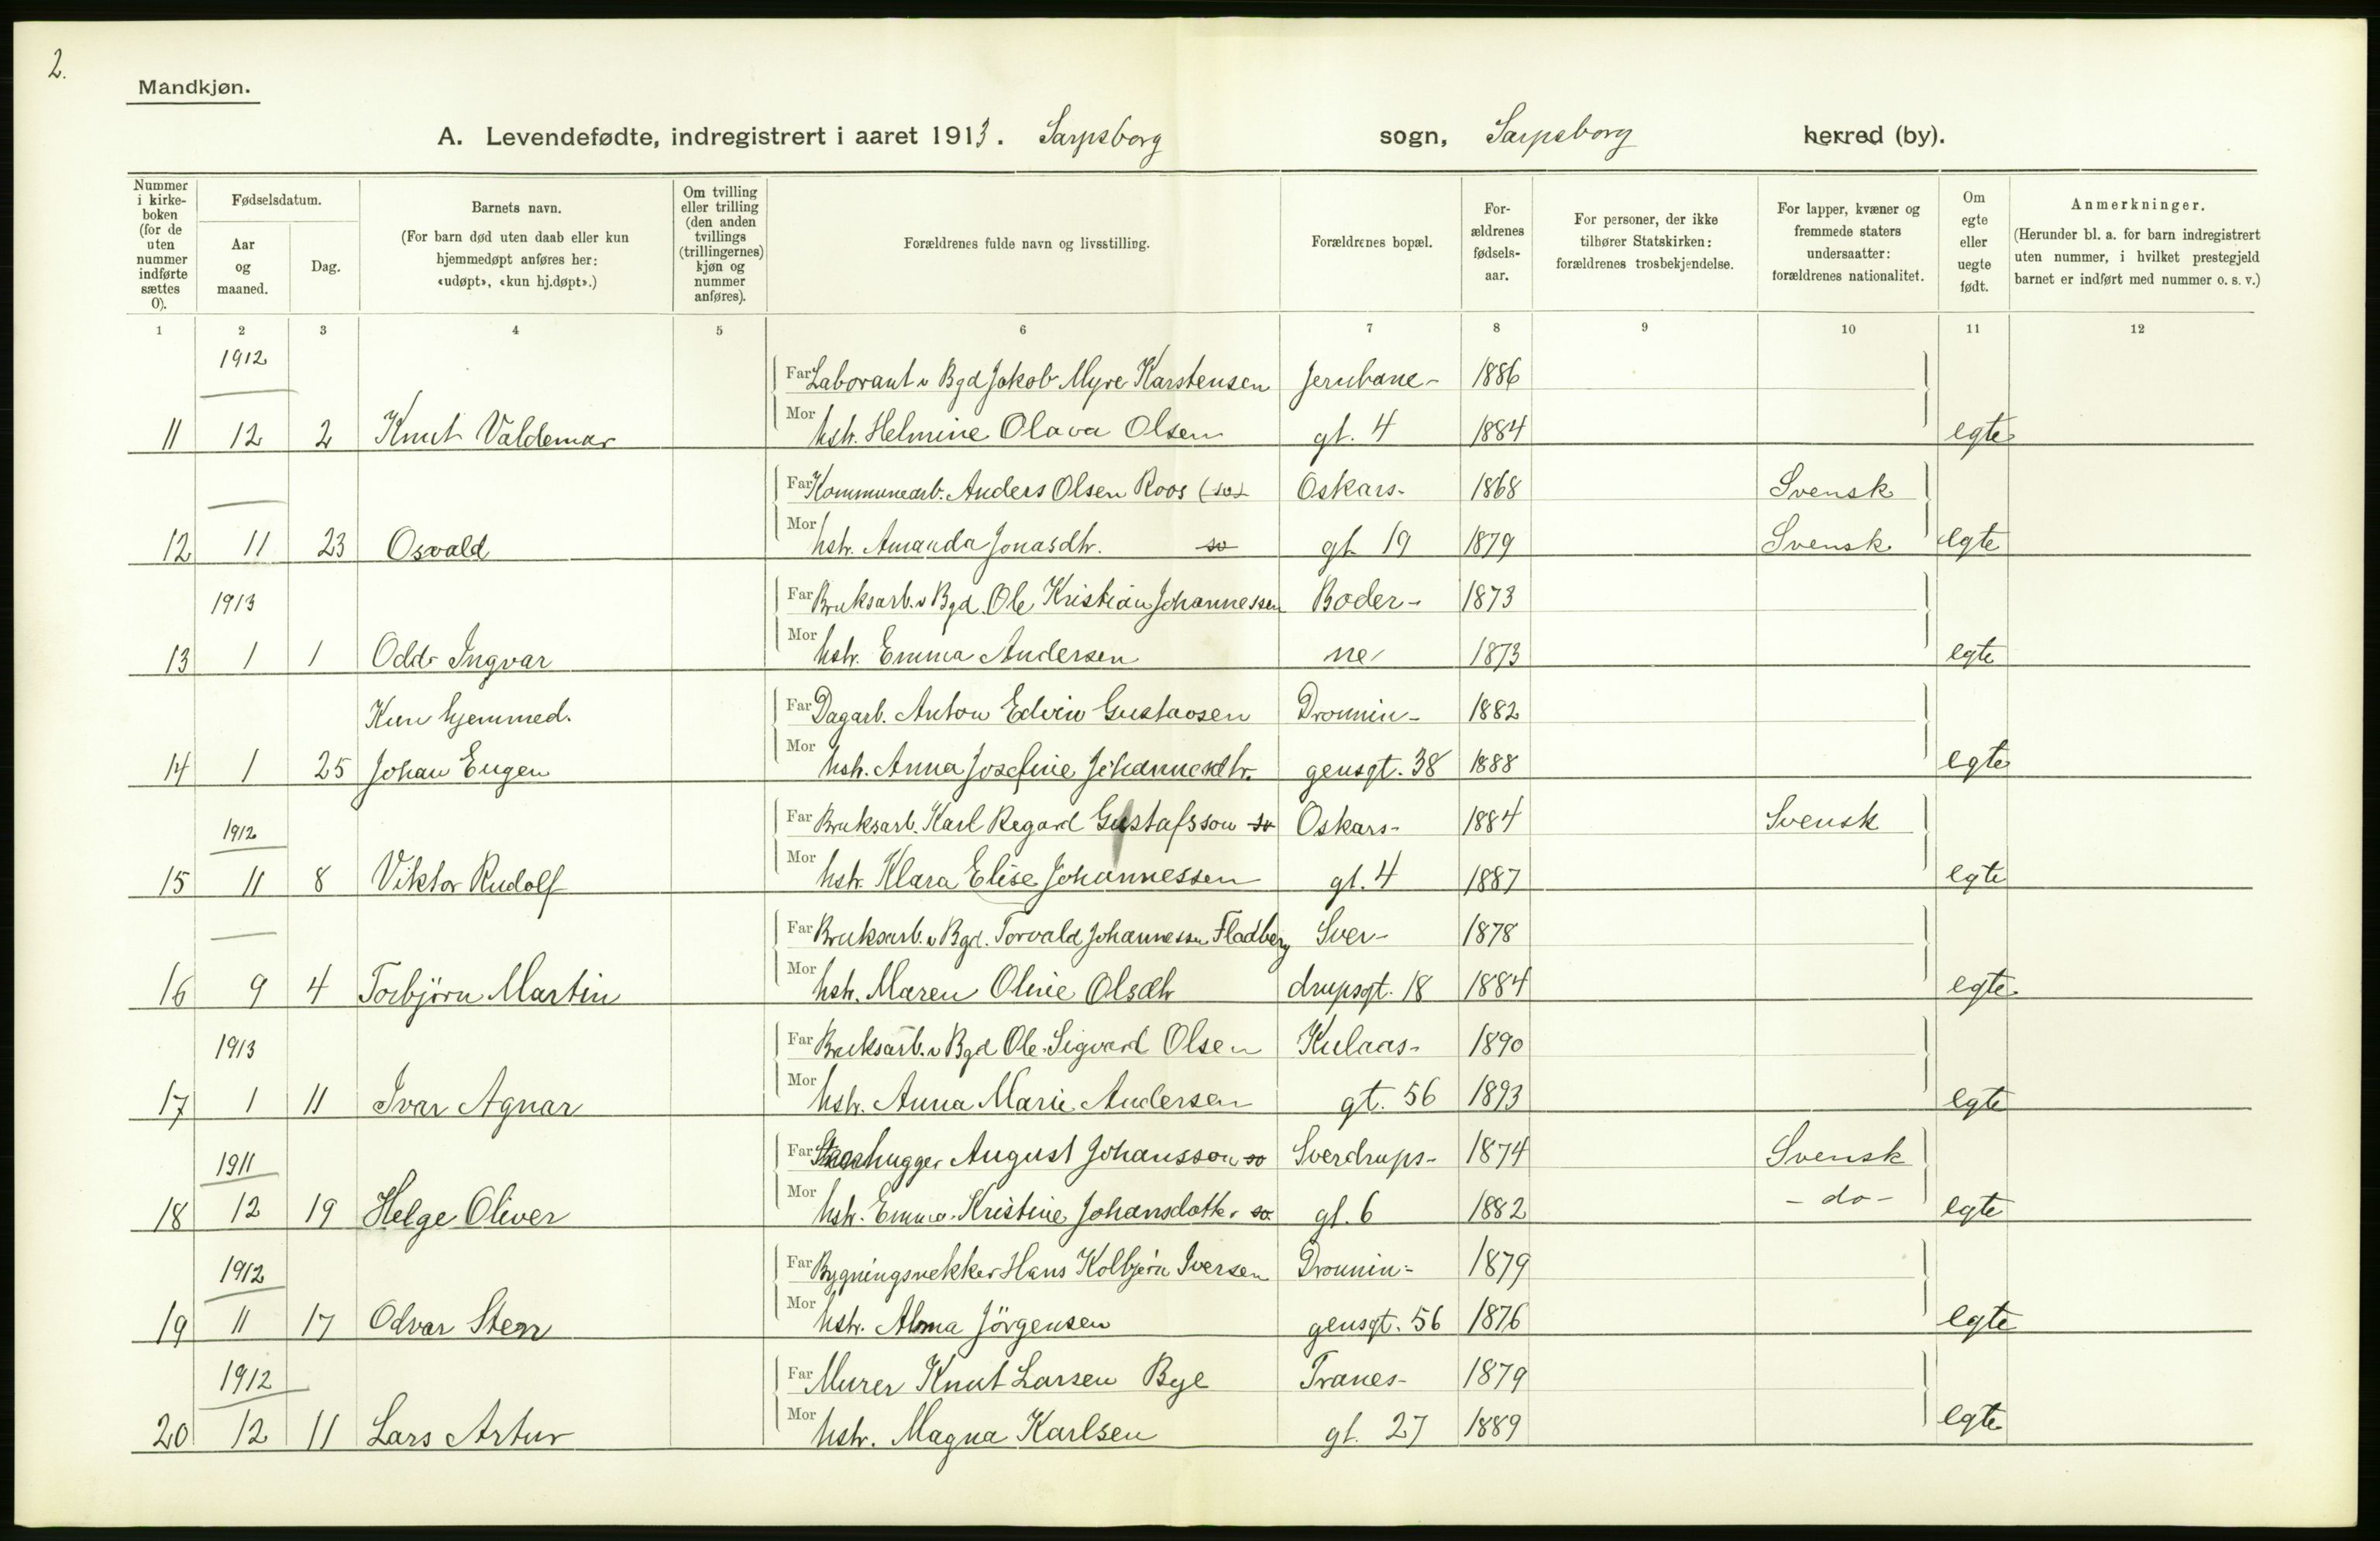 2.
Mandkjøn.
A. Levendefødte, indregistrert i aaret 1913. Sarpsborg sogn, Sarpsborg herred (by).
Nummer i kirkeboken (for de uten nummer indførte sættes 0).
Fødselsdatum.
Aar og maaned.
Dag.
Barnets navn.
(For barn død uten daab eller kun hjemmedøpt anføres her: «udøpt», «kun hj.døpt».)
Om tvilling eller trilling (den anden tvillings (trillingernes) kjøn og nummer anføres).
Forældrenes fulde navn og livsstilling.
Forældrenes bopæl.
Forældrenes fødselsaar.
For personer, der ikke tilhører Statskirken: forældrenes trosbekjendelse.
For lapper, kvæner og fremmede staters undersaatter: forældrenes nationalitet.
Om egte eller uegte født.
Anmerkninger.
(Herunder bl. a. for barn indregistrert uten nummer, i hvilket prestegjeld barnet er indført med nummer o. s. v.)
1 2 3 4 5 6 7 8 9 10 11 12
1912 Far Laborant v Bgd Jakob Myre Karstensen Jernbane- 1886
11 12 2 Knut Valdemar Mor hstr. Helmine Olava Olsen gt. 4 1884 egte
Far Kommunearb. Anders Olsen Roos (sv) Oskars- 1868 Svensk
12 11 23 Osvald Mor hstr. Amanda Jonasdtr. sv gt 19 1879 Svensk egte
1913 Far Bruksarb. v Bgd. Ole Kristian Johannessen Boder- 1873
13 1 1 Odd Ingvar Mor hstr. Emma Andersen ne 1873 egte
Kun hjemmed. Far Dagarb. Anton Edvin Gustavsen Dronnin- 1882
14 1 25 Johan Eugen Mor hstr. Anna Josefine Johannesdtr. gensgt. 38 1888 egte
1912 Far Bruksarb. Karl Regard Gustafsson sv Oskars- 1884 Svensk
15 11 8 Viktor Rudolf Mor hstr. Klara Elise Johannessen gt. 4 1887 egte
Far Bruksarb. v Bgd. Torvald Johannessen Fladberg Sver- 1878
16 9 4 Torbjörn Martin Mor hstr. Maren Oline Olsdtr drupsgt. 18 1884 egte
1913 Far Bruksarb. v Bgd Ole Sigvard Olsen Kulaas- 1890
17 1 11 Ivar Agnar Mor hstr. Anna Marie Andersen gt. 56 1893 egte
1911 Far hugger August Johansson sv Sverdrups- 1874 Svensk
18 12 19 Helge Oliver Mor hstr. Emma Kristine Johansdotter sv gt. 6 1882 - do - egte
1912 Far Bygningssnekker Hans Kolbjörn Iversen Dronnin- 1879
19 11 17 Odvar Sten Mor hstr. Alma Jörgensen gensgt. 56 1876 egte
1912 Far Murer Knut Larsen Bye Tranes- 1879
20 12 11 Lars Artur Mor hstr. Magna Karlsen gt. 27 1889 egte